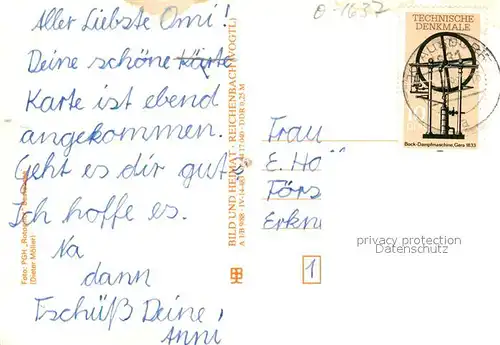 Aller Liebste Omi!
Deine schöne Karte
Karte ist ebend
angekommen.
Geht es dir gut?
Ich hoffe es.
Na
dann
Tschüß Deine,
Anni
Foto: PGH „Rotop
(Dieter Möller)
BILD UND HEIMAT · REICHENBACH (VOGTL)
TECHNISCHE
DENKMALE
10
Bock-Dampfmaschine, Gera 1833
Frau
E. Hö
Förs
Erkn
privacy protection
Datenschutz
1